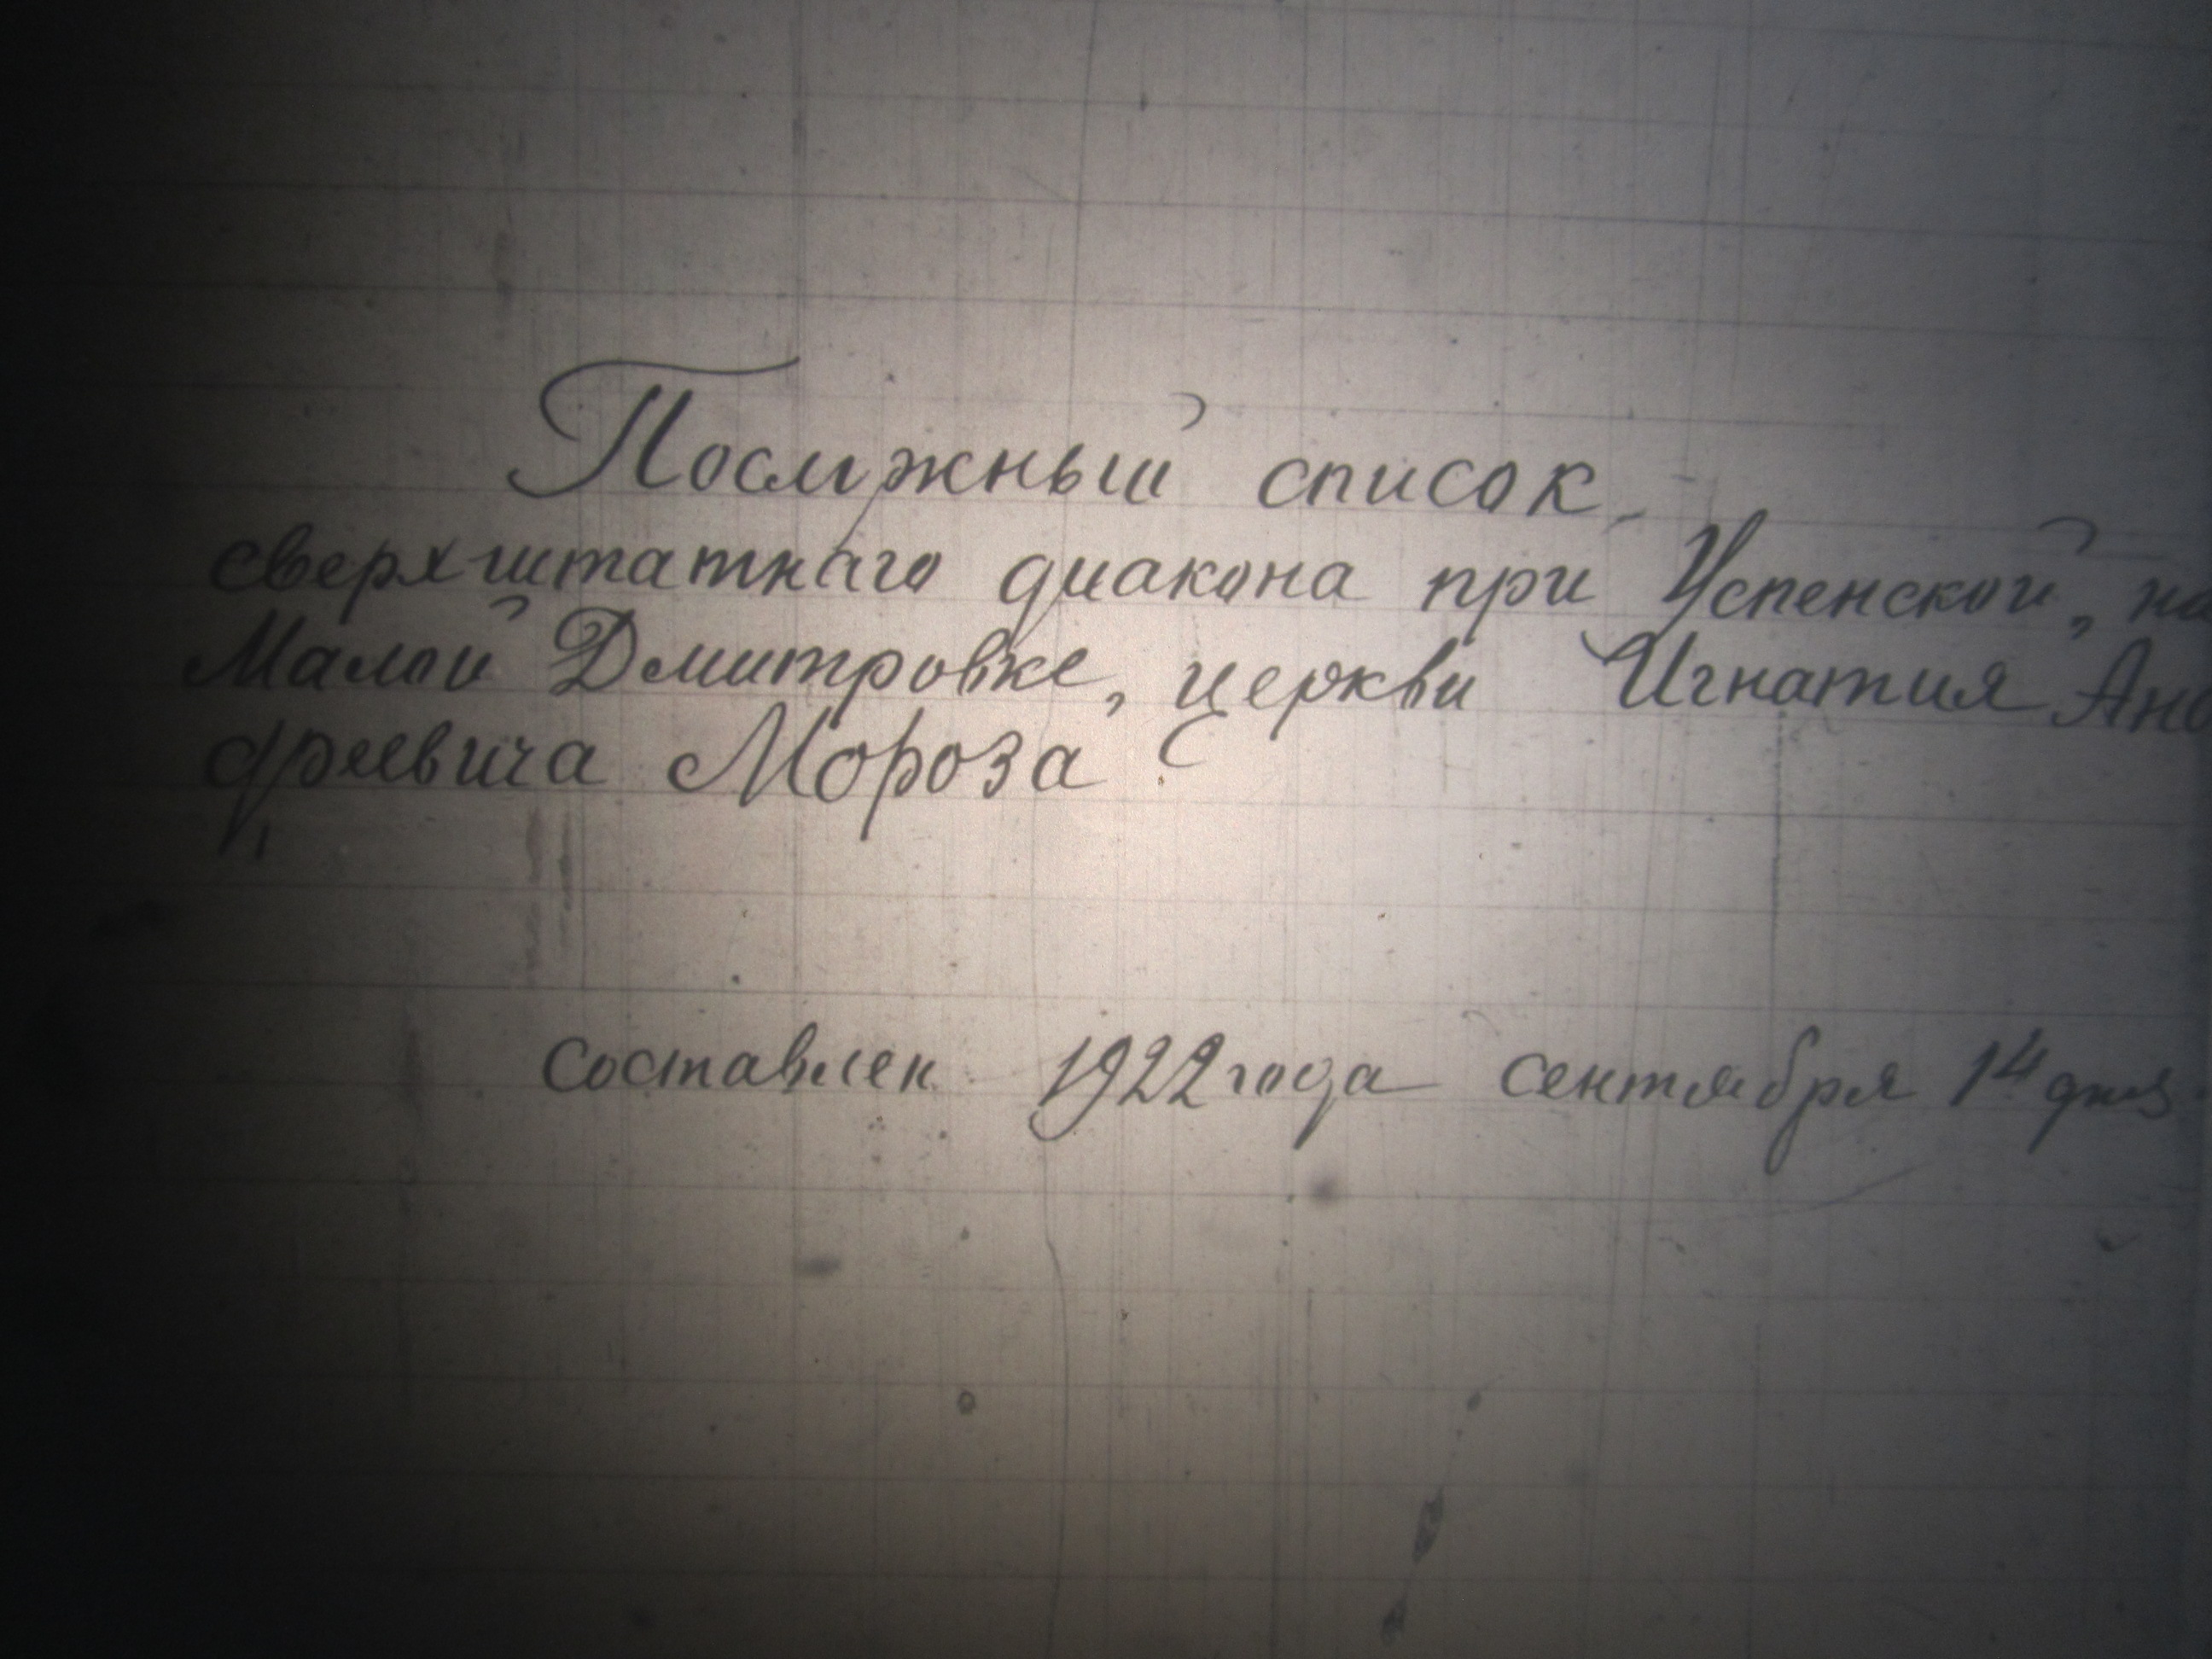 Послужный список.
сверхштатнаго диакона при Успенской, на
Малой Дмитровке, церкви Игнатия Анд
реевича Мороза
Составлен 1922 года сентября 14 дня